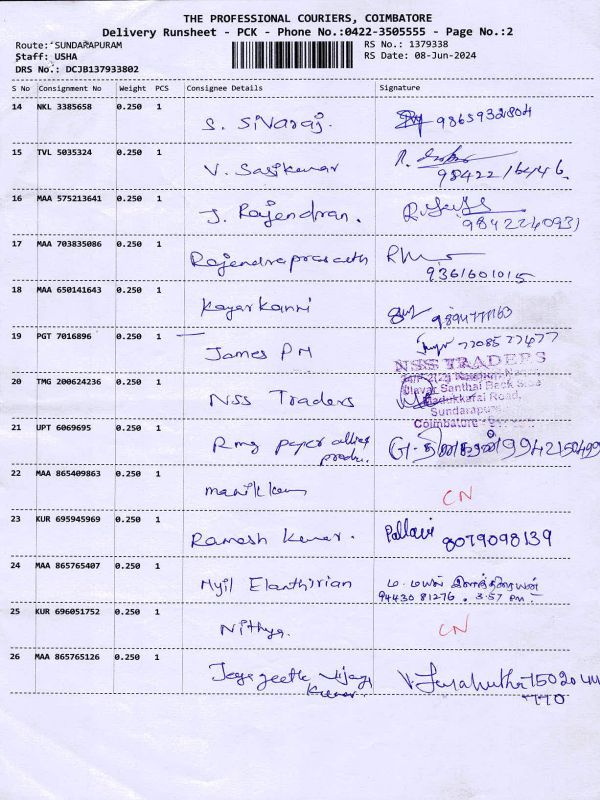 THE PROFESSIONAL COURIERS, COIMBATORE
Delivery Runsheet - PCK - Phone No.:0422-3505555 - Page No.:2
Route: SUNDARAPURAM
Staff: USHA
DRS No.: DCJB137933802
RS No.: 1379338
RS Date: 08-Jun-2024
S No Consignment No Weight PCS Consignee Details Signature
14 NKL 3385658 0.250 1 S. Sivaraj. 9865932804
15 TVL 5035324 0.250 1 V. Sasikumar
9842216446
16 MAA 575213641 0.250 1 J. Rajendran.
9842240931
17 MAA 703835086 0.250 1 Rajendraprasath
9361601015
18 MAA 650141643 0.250 1 Kayarkanni
19 PGT 7016896 0.250 1 James PM 7708527477
NSS TRADERS
20 TMG 200624236 0.250 1 NSS Traders
Ulavar Santhai Back Side
Madukkarai Road,
Sundarapuram
Coimbatore
21 UPT 6069695 0.250 1 Rmg paper allied
produ.
22 MAA 865409863 0.250 1 manikkam CN
23 KUR 695945969 0.250 1 Ramesh Kumar. Pallavi 8079098139
24 MAA 865765407 0.250 1 Myil Elanthirian ம. மயில் இளந்திரையன்
94430 81276. 3.57 pm.
25 KUR 696051752 0.250 1 Nithya. CN
26 MAA 865765126 0.250 1 Jaya geetha Vijaya
Kumar